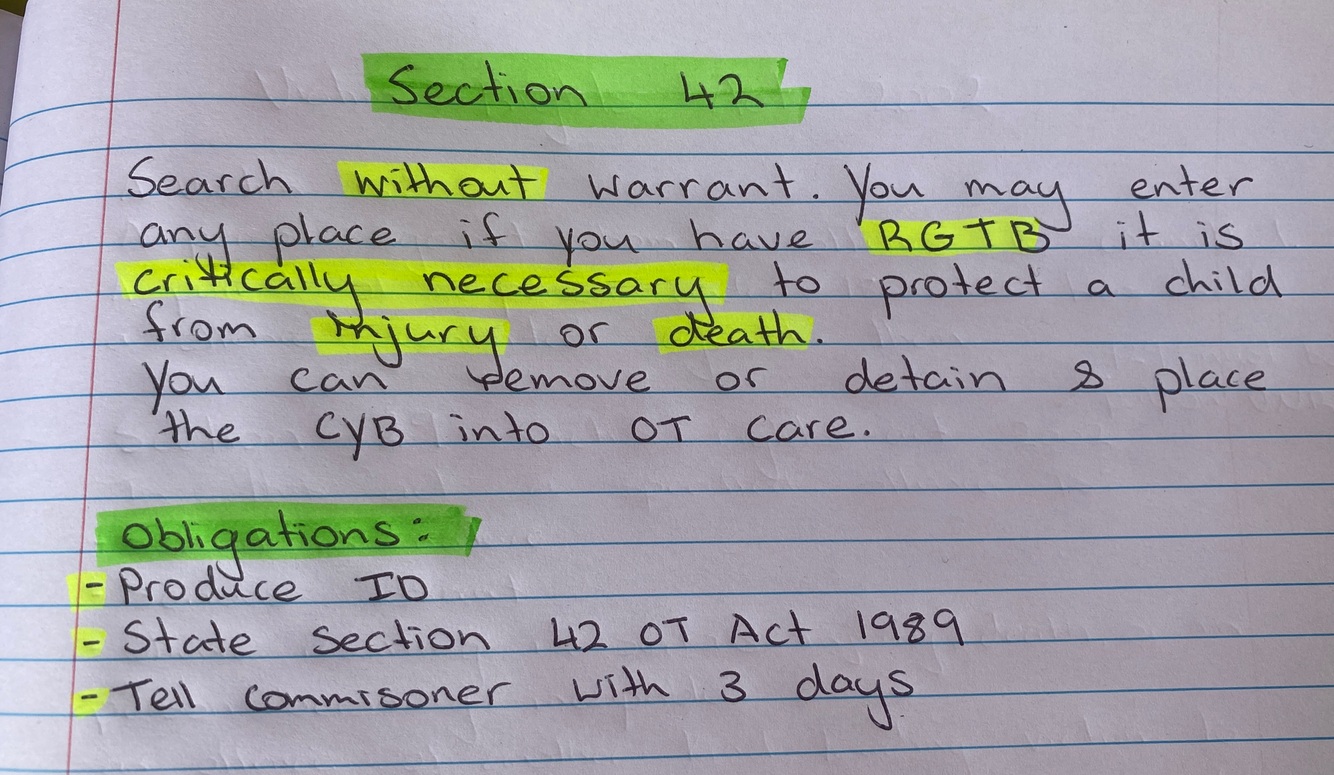 Section 42
Search without warrant. You may enter
any place if you have RGTB it is
critically necessary to protect a child
from injury or death.
You can remove or detain & place
the CYB into OT care.
Obligations:
- Produce ID
- State Section 42 OT Act 1989
- Tell commisoner with 3 days